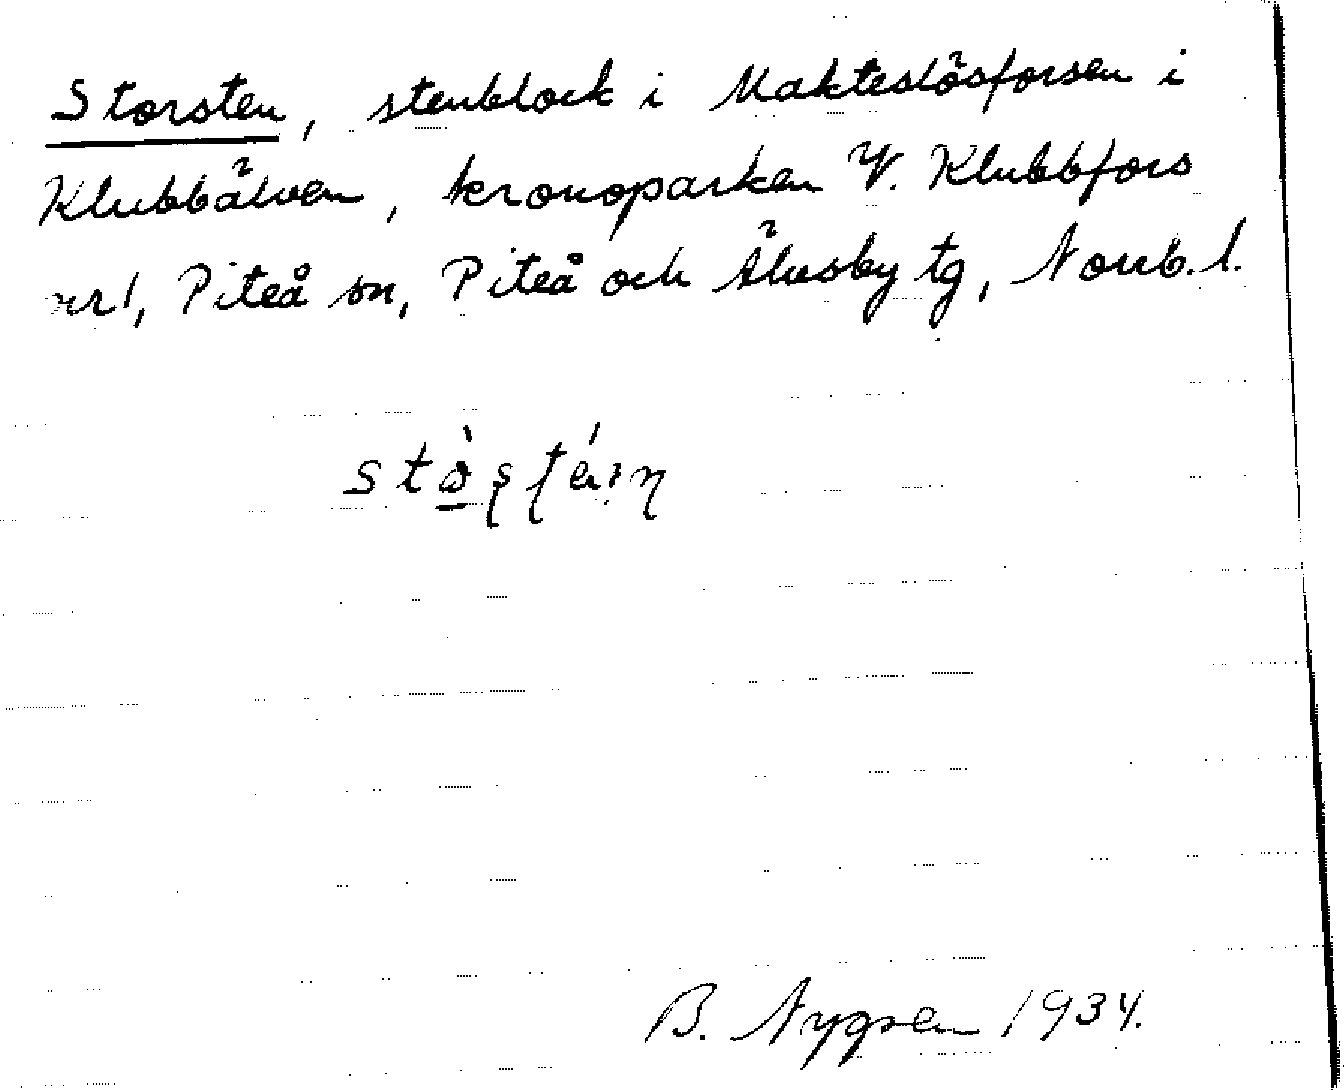 Storsten, stenblock i Makteslösforsen i
Klubbälven, kronoparken V. Klubbfors
nr 1, Piteå sn, Piteå och Älvsby tg, Norrb. l.
B. Nygren 1934.